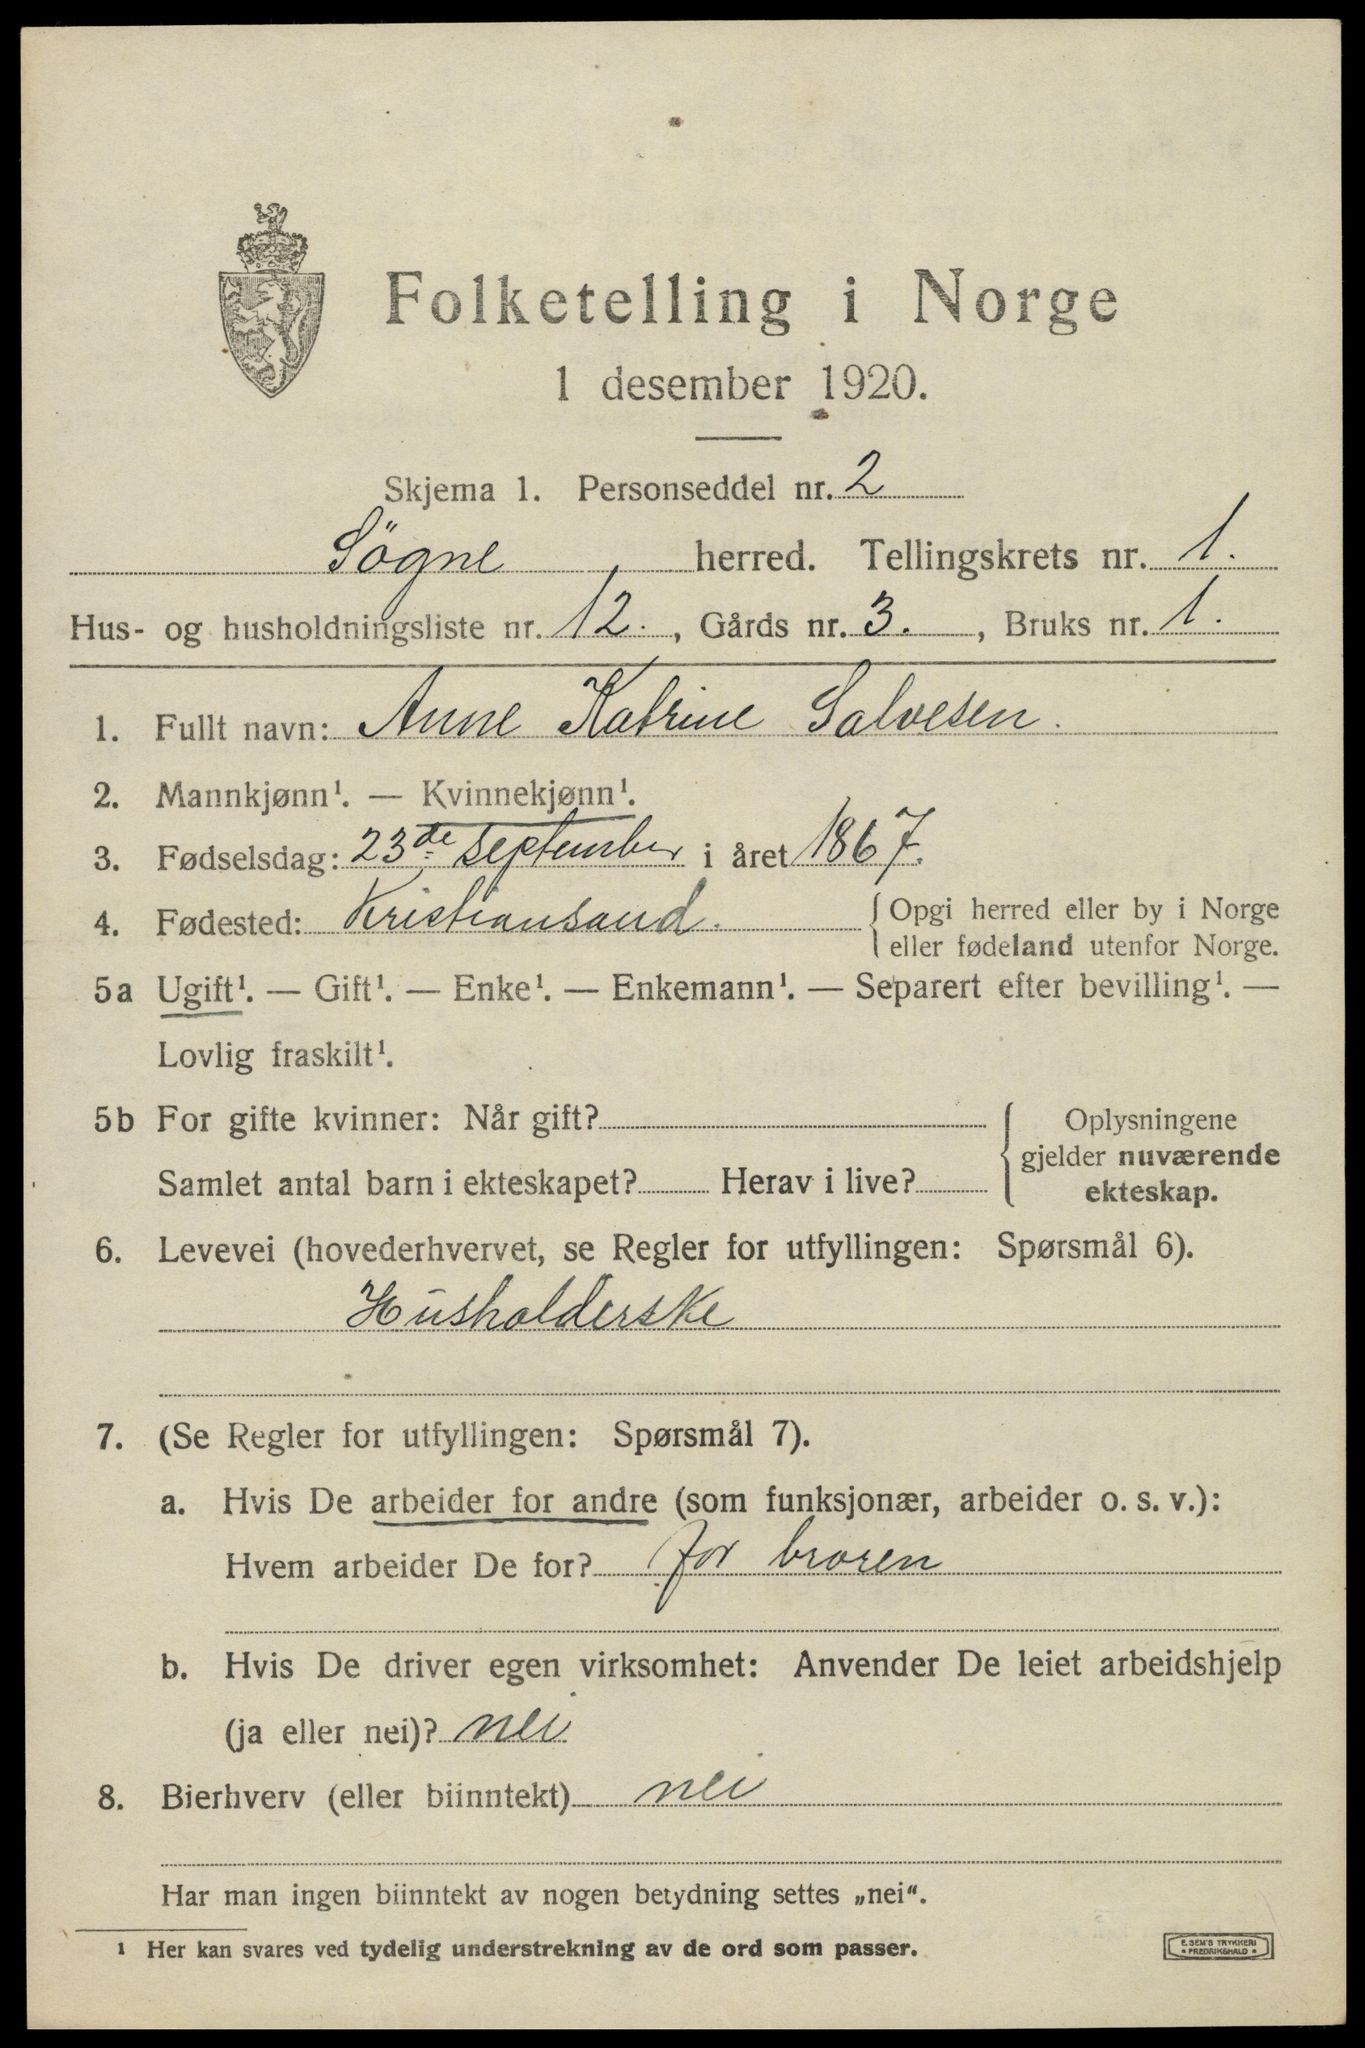 Folketelling i Norge
1 desember 1920.
Skjema 1. Personseddel nr. 2
Søgne herred. Tellingskrets nr. 1.
Hus- og husholdningsliste nr. 12., Gårds nr. 3., Bruks nr. 1.
1. Fullt navn: Anne Katrine Salvesen.
2. Mannkjønn¹. — Kvinnekjønn¹.
3. Fødselsdag: 23de september i året 1867.
4. Fødested: Kristiansand. { Opgi herred eller by i Norge
eller fødeland utenfor Norge.
5a Ugift¹. — Gift¹. — Enke¹. — Enkemann¹. — Separert efter bevilling¹. —
Lovlig fraskilt¹.
5b For gifte kvinner: Når gift? { Oplysningene
gjelder nuværende
Samlet antal barn i ekteskapet? Herav i live? ekteskap.
6. Levevei (hovederhvervet, se Regler for utfyllingen: Spørsmål 6).
Husholderske
7. (Se Regler for utfyllingen: Spørsmål 7).
a. Hvis De arbeider for andre (som funksjonær, arbeider o. s. v.):
Hvem arbeider De for? for broren
b. Hvis De driver egen virksomhet: Anvender De leiet arbeidshjelp
(ja eller nei)? nei
8. Bierhverv (eller biinntekt) nei
Har man ingen biinntekt av nogen betydning settes „nei“.
¹ Her kan svares ved tydelig understrekning av de ord som passer.
E. SEM'S TRYKKERI
• FREDRIKSHALD •